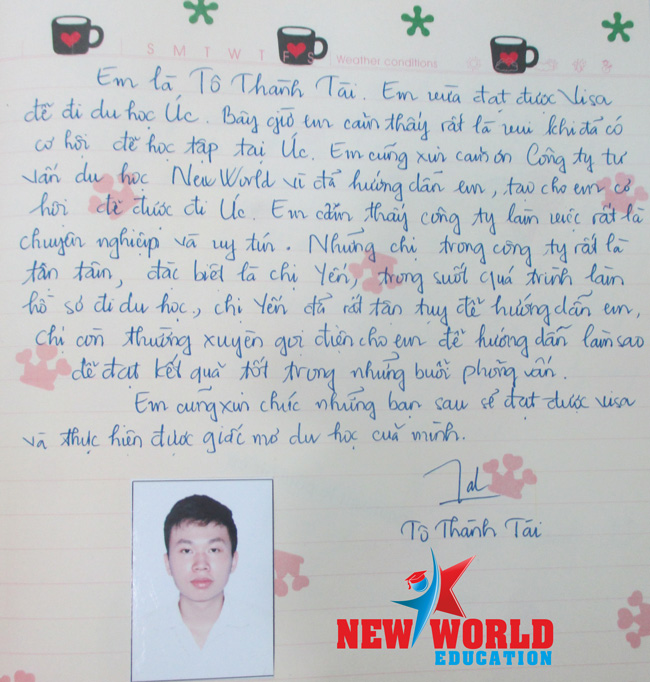 S M T W T F S Weather conditions
Em là Tô Thành Tài. Em vừa đạt được Visa
để đi du học Úc. Bây giờ em cảm thấy rất là vui khi đã có
cơ hội để học tập tại Úc. Em cũng xin cảm ơn Công ty tư
vấn du học New World vì đã hướng dẫn em, tạo cho em cơ
hội để được đi Úc. Em cảm thấy công ty làm việc rất là
chuyên nghiệp và uy tín. Những chị trong công ty rất là
tận tâm, đặc biệt là chị Yến, trong suốt quá trình làm
hồ sơ đi du học, chị Yến đã rất tận tụy để hướng dẫn em,
chị còn thường xuyên gọi điện cho em để hướng dẫn làm sao
để đạt kết quả tốt trong những buổi phỏng vấn.
Em cũng xin chúc những bạn sau sẽ đạt được visa
và thực hiện được giấc mơ du học của mình.
Tô Thành Tài
NEW WORLD
EDUCATION